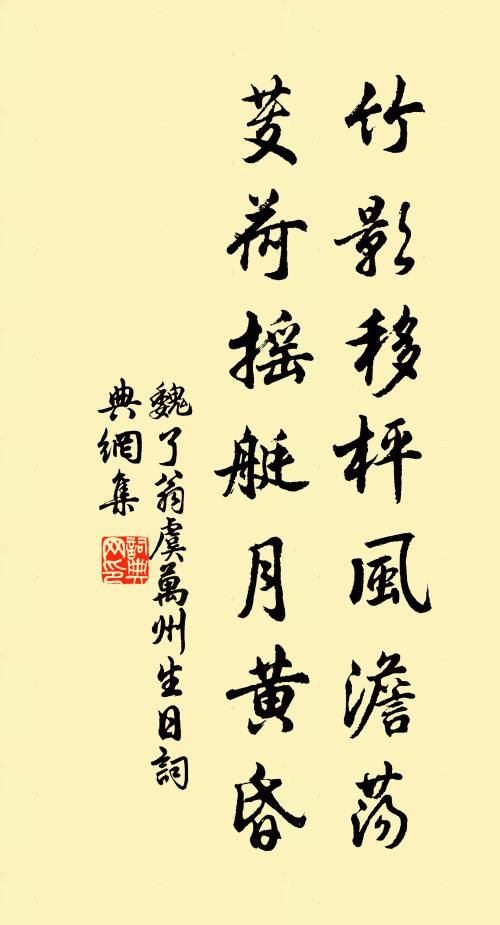 竹影移枰風澹蕩
芰荷揺艇月黃昏
魏了翁虞萬州生日詞
典網集
詞典
网印